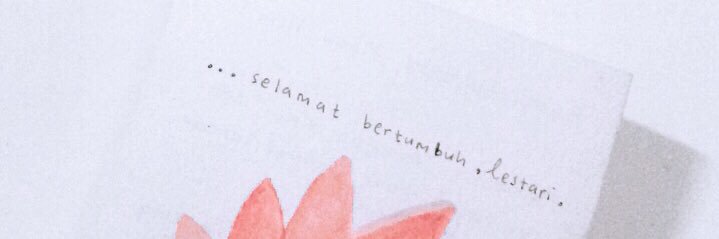 ... selamat bertumbuh, lestari.